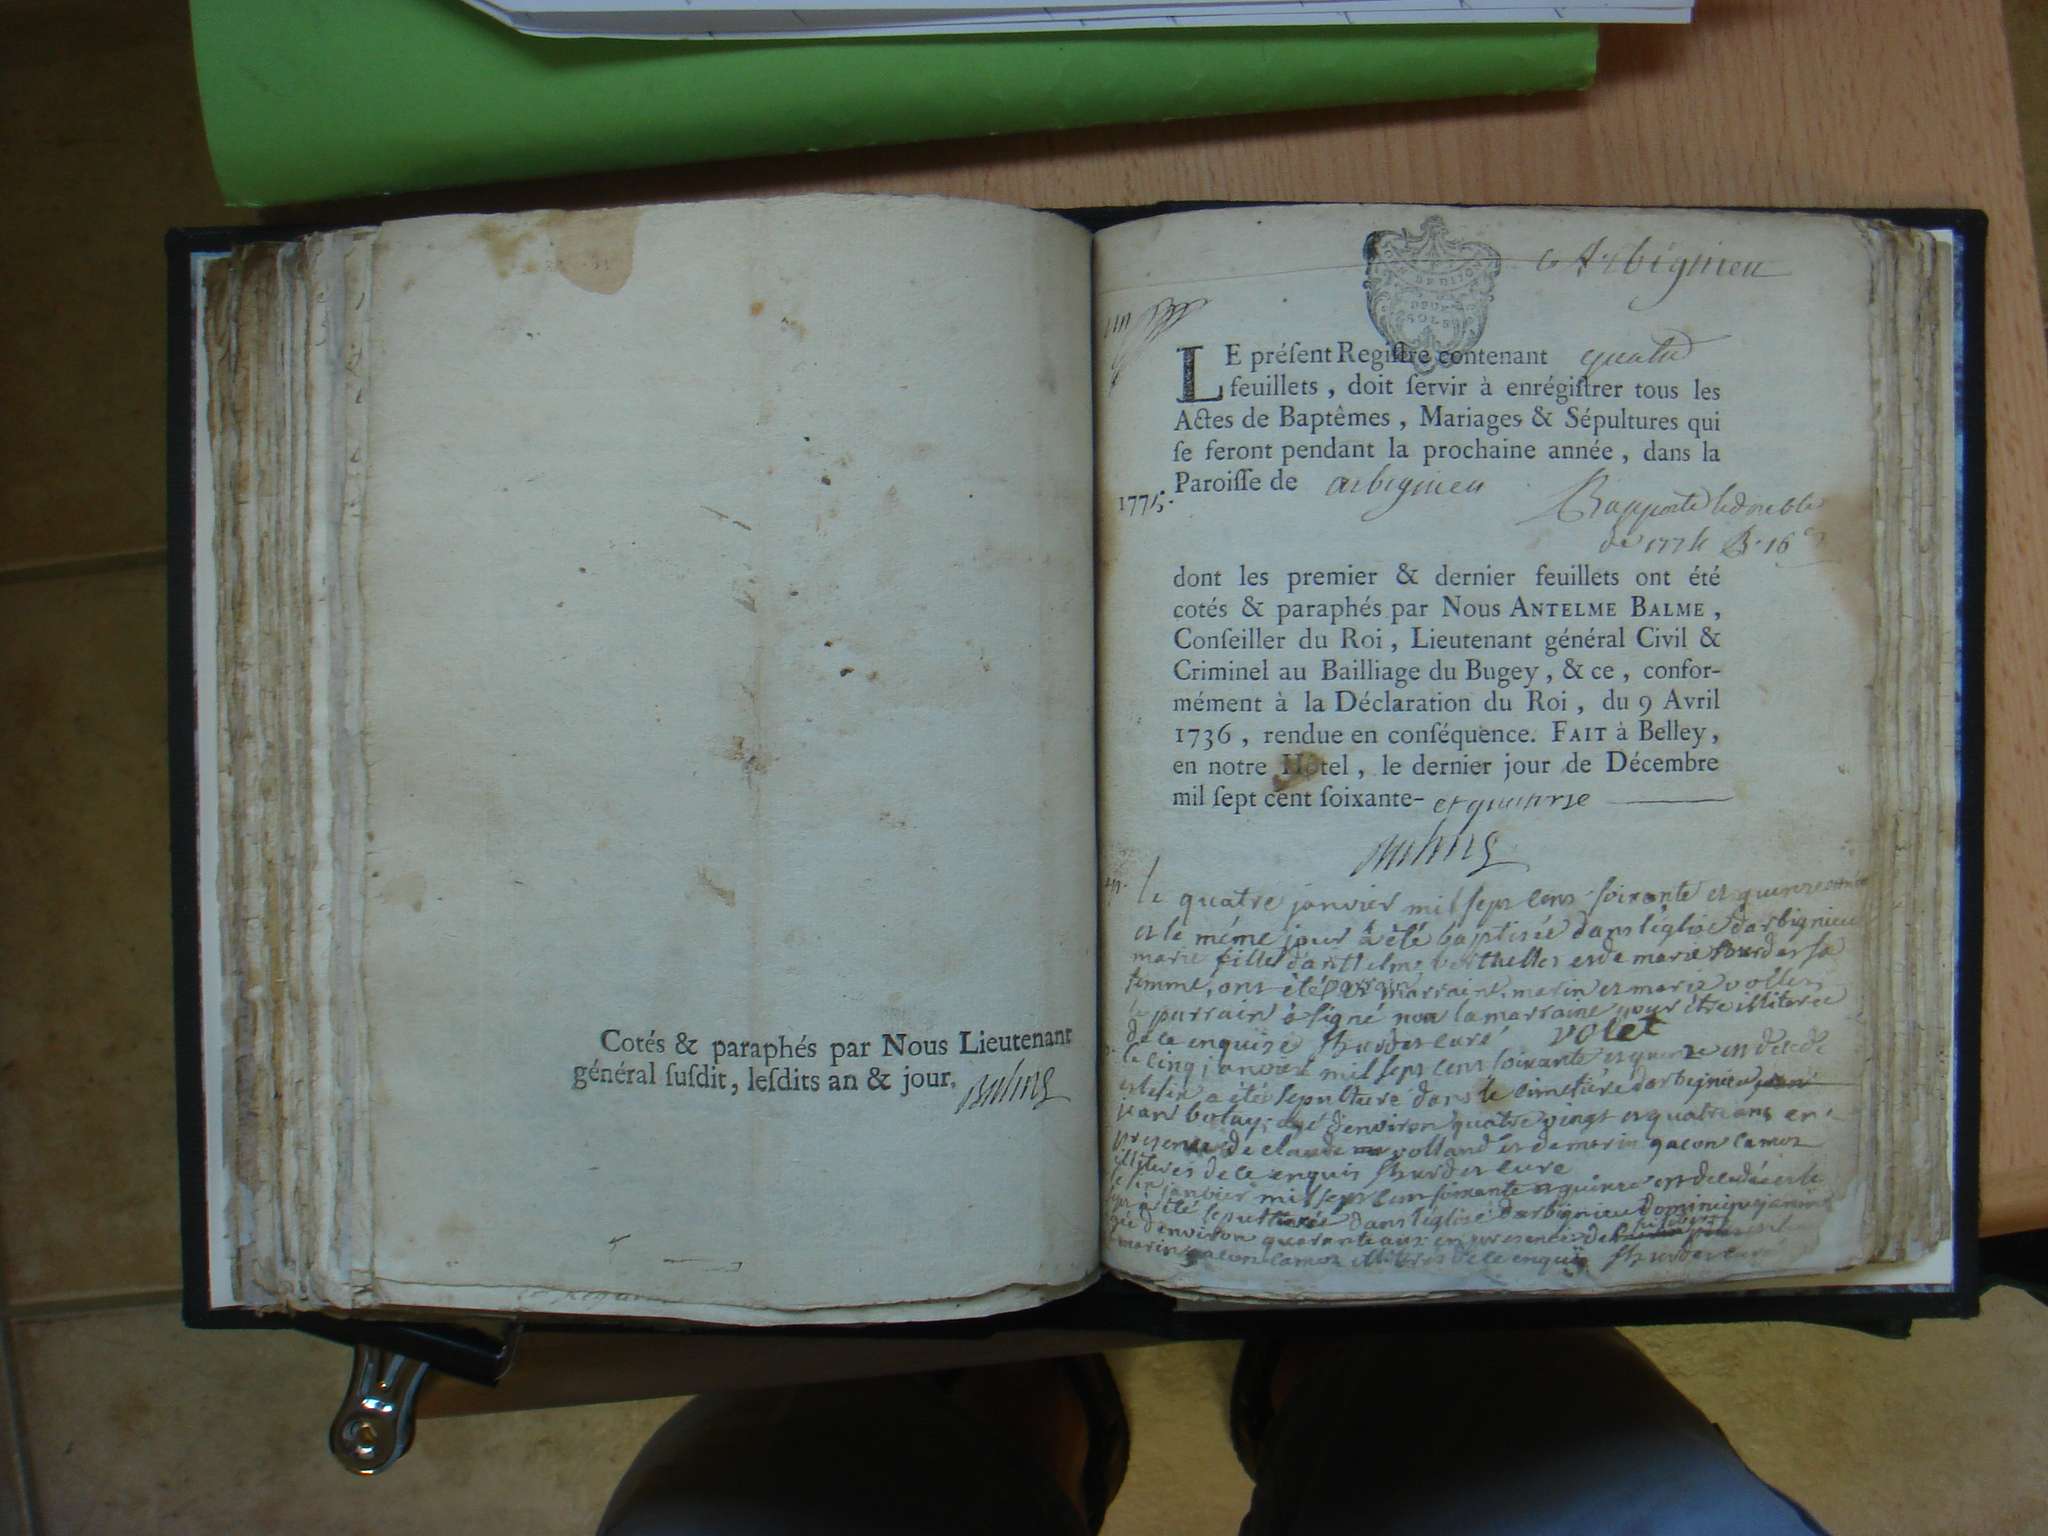 Cotés & paraphés par Nous Lieutenant
général ſuſdit, leſdits an & jour.
Arbignieu
un
LE préſent Regiſtre contenant quatre
feuillets, doit ſervir à enrégiſtrer tous les
Actes de Baptêmes, Mariages & Sépultures qui
ſe feront pendant la prochaine année, dans la
Paroiſſe de arbignieu
1775.
Rapporté le double
de 1774
dont les premier & dernier feuillets ont été
cotés & paraphés par Nous ANTELME BALME,
Conſeiller du Roi, Lieutenant général Civil &
Criminel au Bailliage du Bugey, & ce, confor-
mément à la Déclaration du Roi, du 9 Avril
1736, rendue en conſéquence. FAIT à Belley,
en notre Hôtel, le dernier jour de Décembre
mil ſept cent ſoixante- et quatorse
le quatre janvier mil sept cens soixante et quinze
et le méme jour a été baptisée dans l'église d'arbignieu
marie fille d'anthelme berthellet et de marie hurder sa
femme, ont été parrain marraine, marin et marie vollet
le parrain a signé non la marraine pour être illiterée
de ce enquise hurder curé volet
le cinq janvier mil sept cens soixante et quinze est decede
et le six a été sepulturé dans le cimetière d'arbignieu
jean botuy, agé d'environ quatre vingt et quatre ans en
presence de claude volland et de marin gacon camoz
illiteres de ce enquis hurder curé
le six janvier mil sept cens soixante et quinze est decedé et le
sept a été sepulturé dans l'église d'arbignieu Dominique
agé d'environ quarante ans en presence de
marin gacon camoz illiteres de ce enquis hurder curé